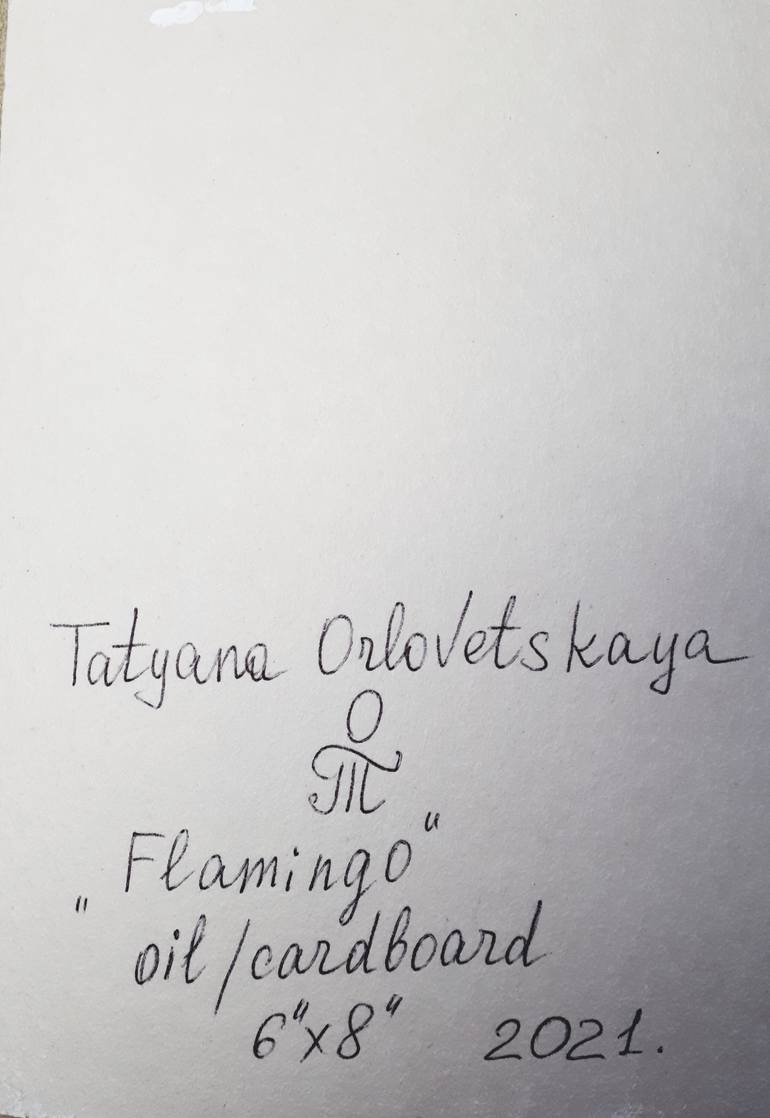 Tatyana Orlovetskaya
О
Т
„Flamingo“
oil/cardboard
6"x8" 2021.